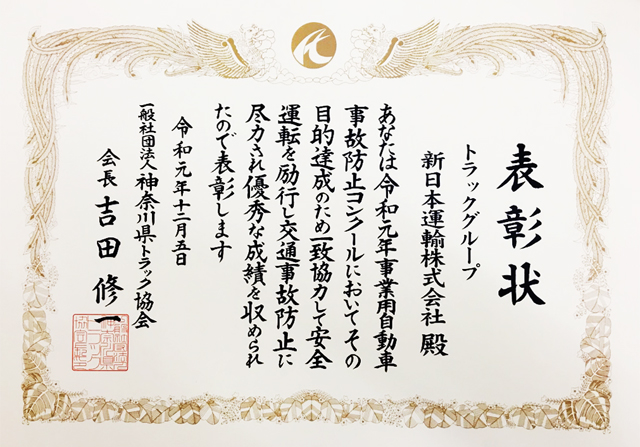 表彰状
トラックグループ
新日本運輸株式会社 殿
あなたは令和元年事業用自動車
事故防止コンクールにおいてその
目的達成のため一致協力して安全
運転を励行し交通事故防止に
尽力され優秀な成績を収められ
たので表彰します
令和元年十二月五日
一般社団法人 神奈川県トラック協会
会長 吉田修一